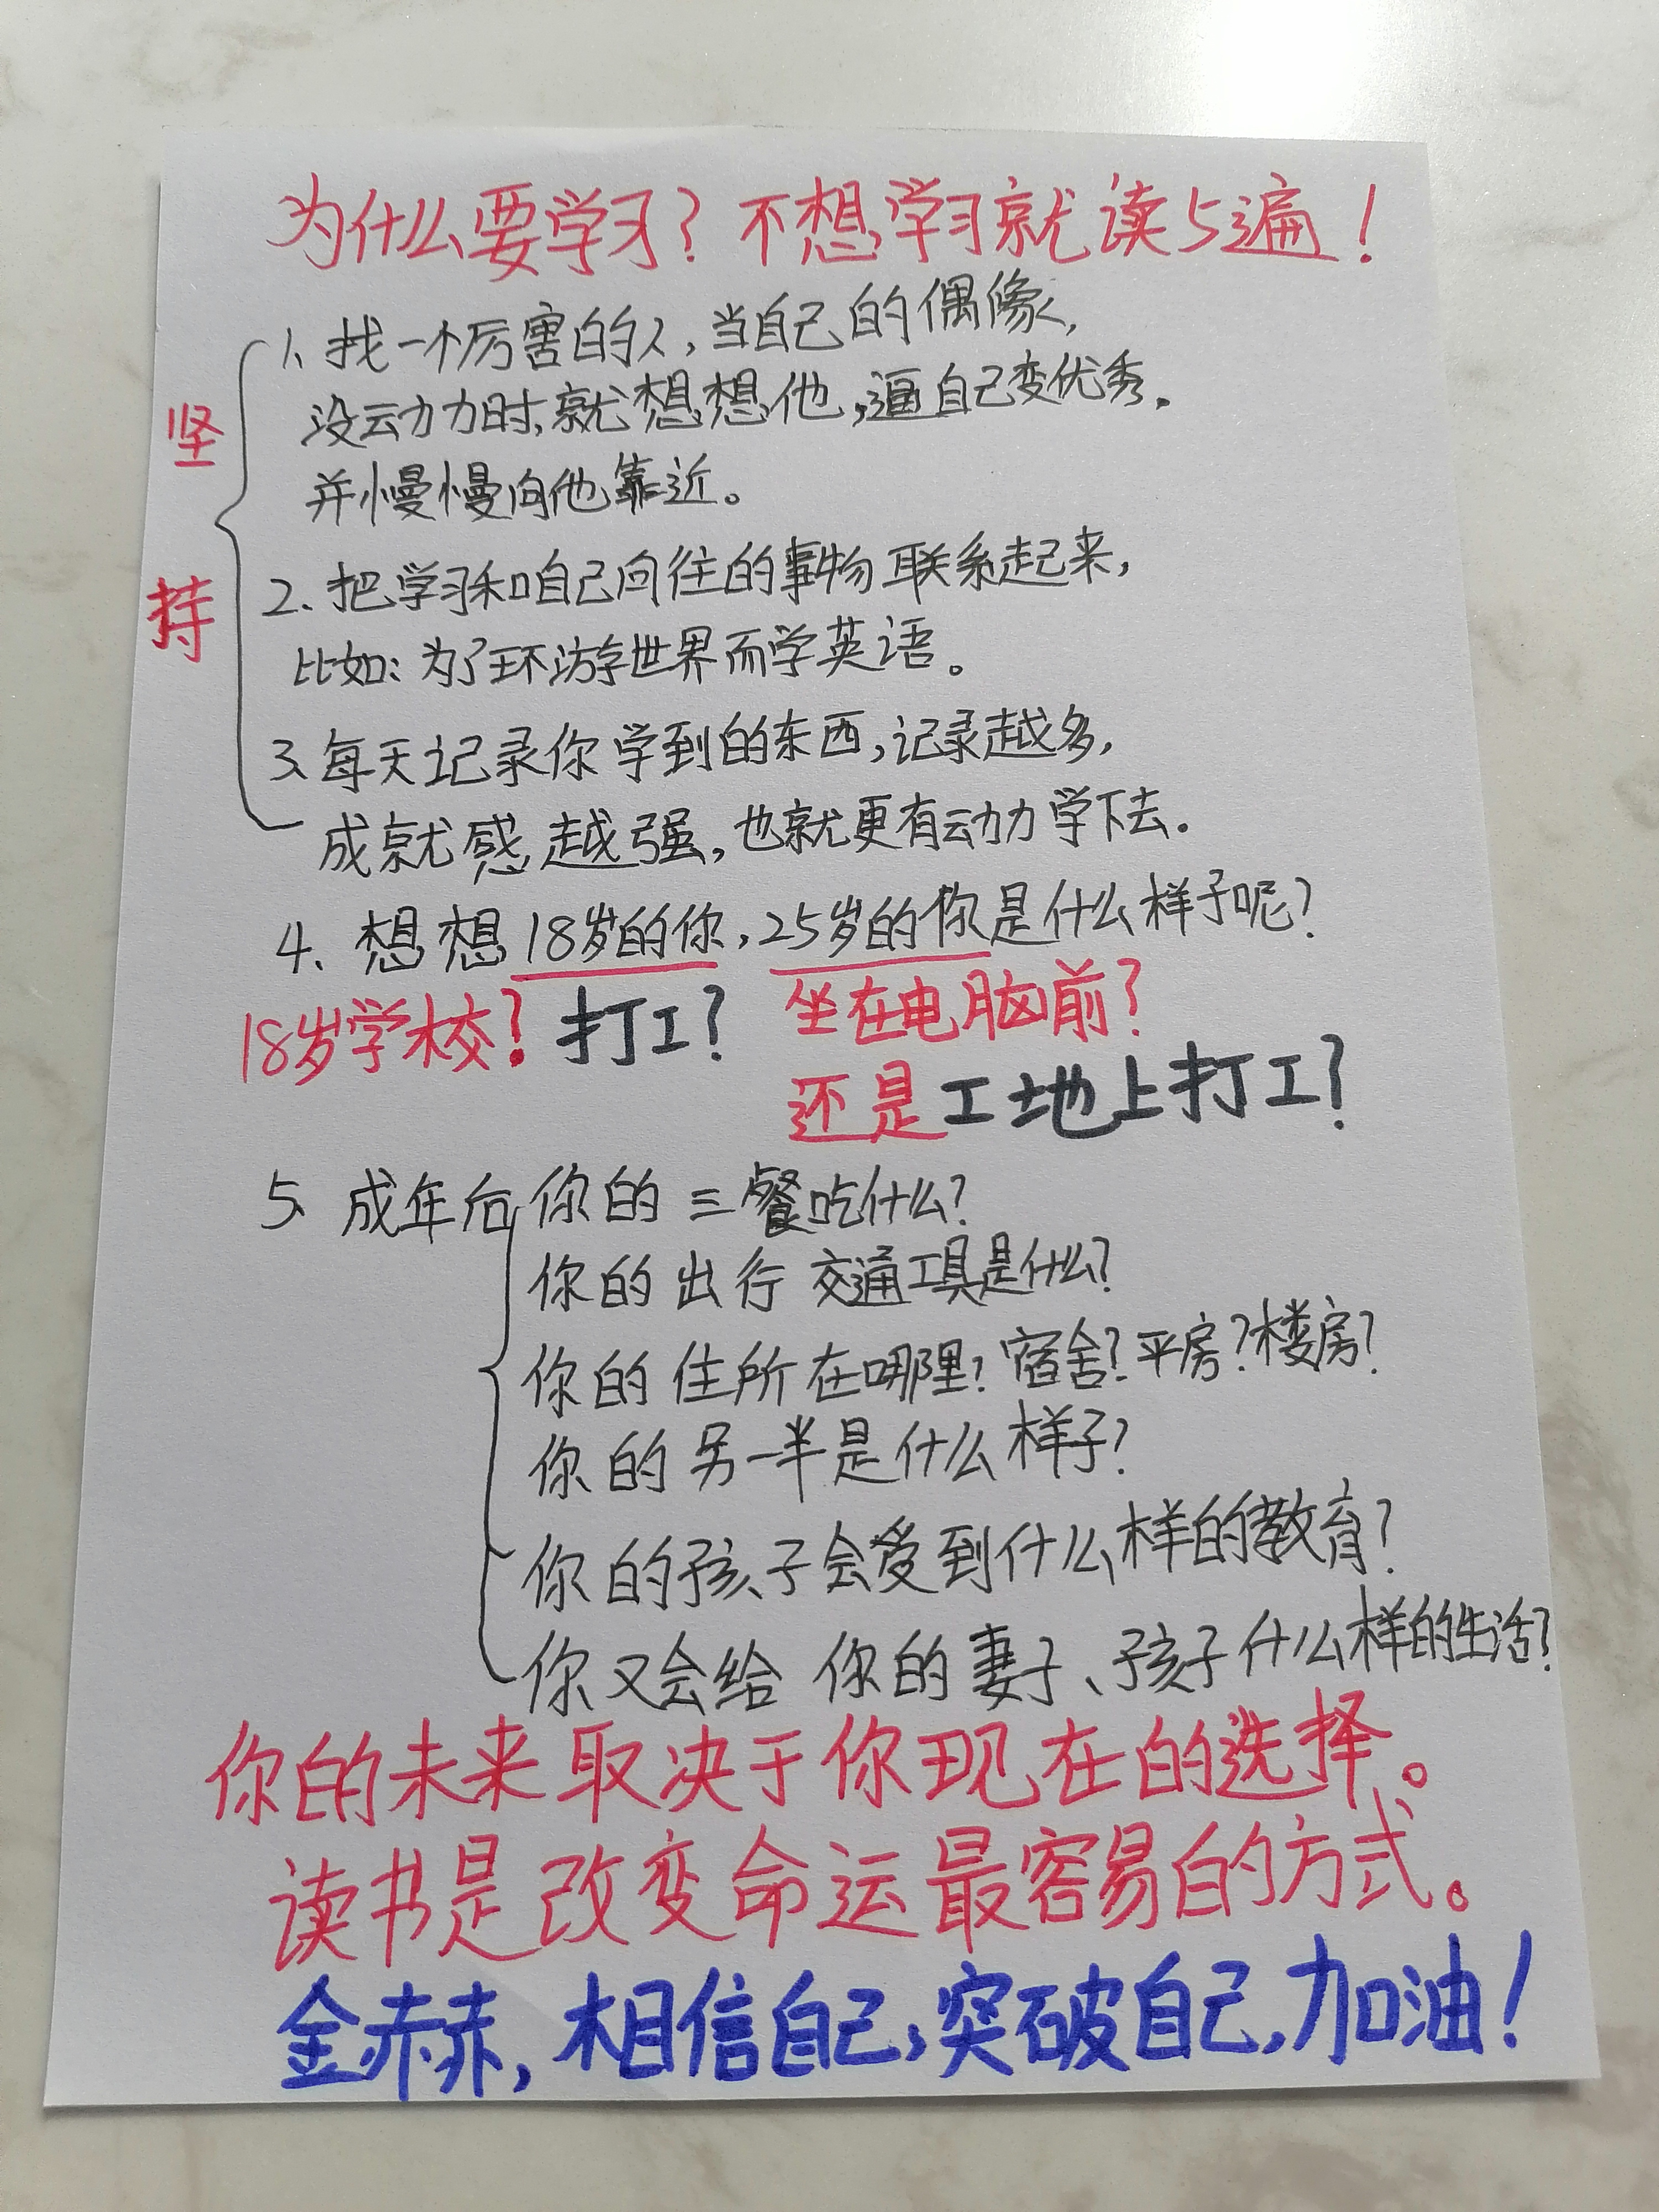 为什么要学习？不想学习就读5遍！
坚持
1、找一个厉害的人，当自己的偶像，
没动力时，就想想他，逼自己变优秀。
并慢慢向他靠近。
2、把学习和咱自己向往的事物联系起来，
比如：为了环游世界而学英语。
3、每天记录你学到的东西，记录越多，
成就感越强，也就更有动力学下去。
4、想想18岁的你，25岁的你是什么样子呢？
18岁学校？打工？ 坐在电脑前？
还是工地上打工？
5、成年后你的三餐吃什么？
你的出行交通工具是什么？
你的住所在哪里？宿舍？平房？楼房？
你的另一半是什么样子？
你的孩子会受到什么样的教育？
你又会给你的妻子、孩子什么样的生活？
你的未来取决于你现在的选择。
读书是改变命运最容易的方式。
金赫，相信自己，突破自己，加油！